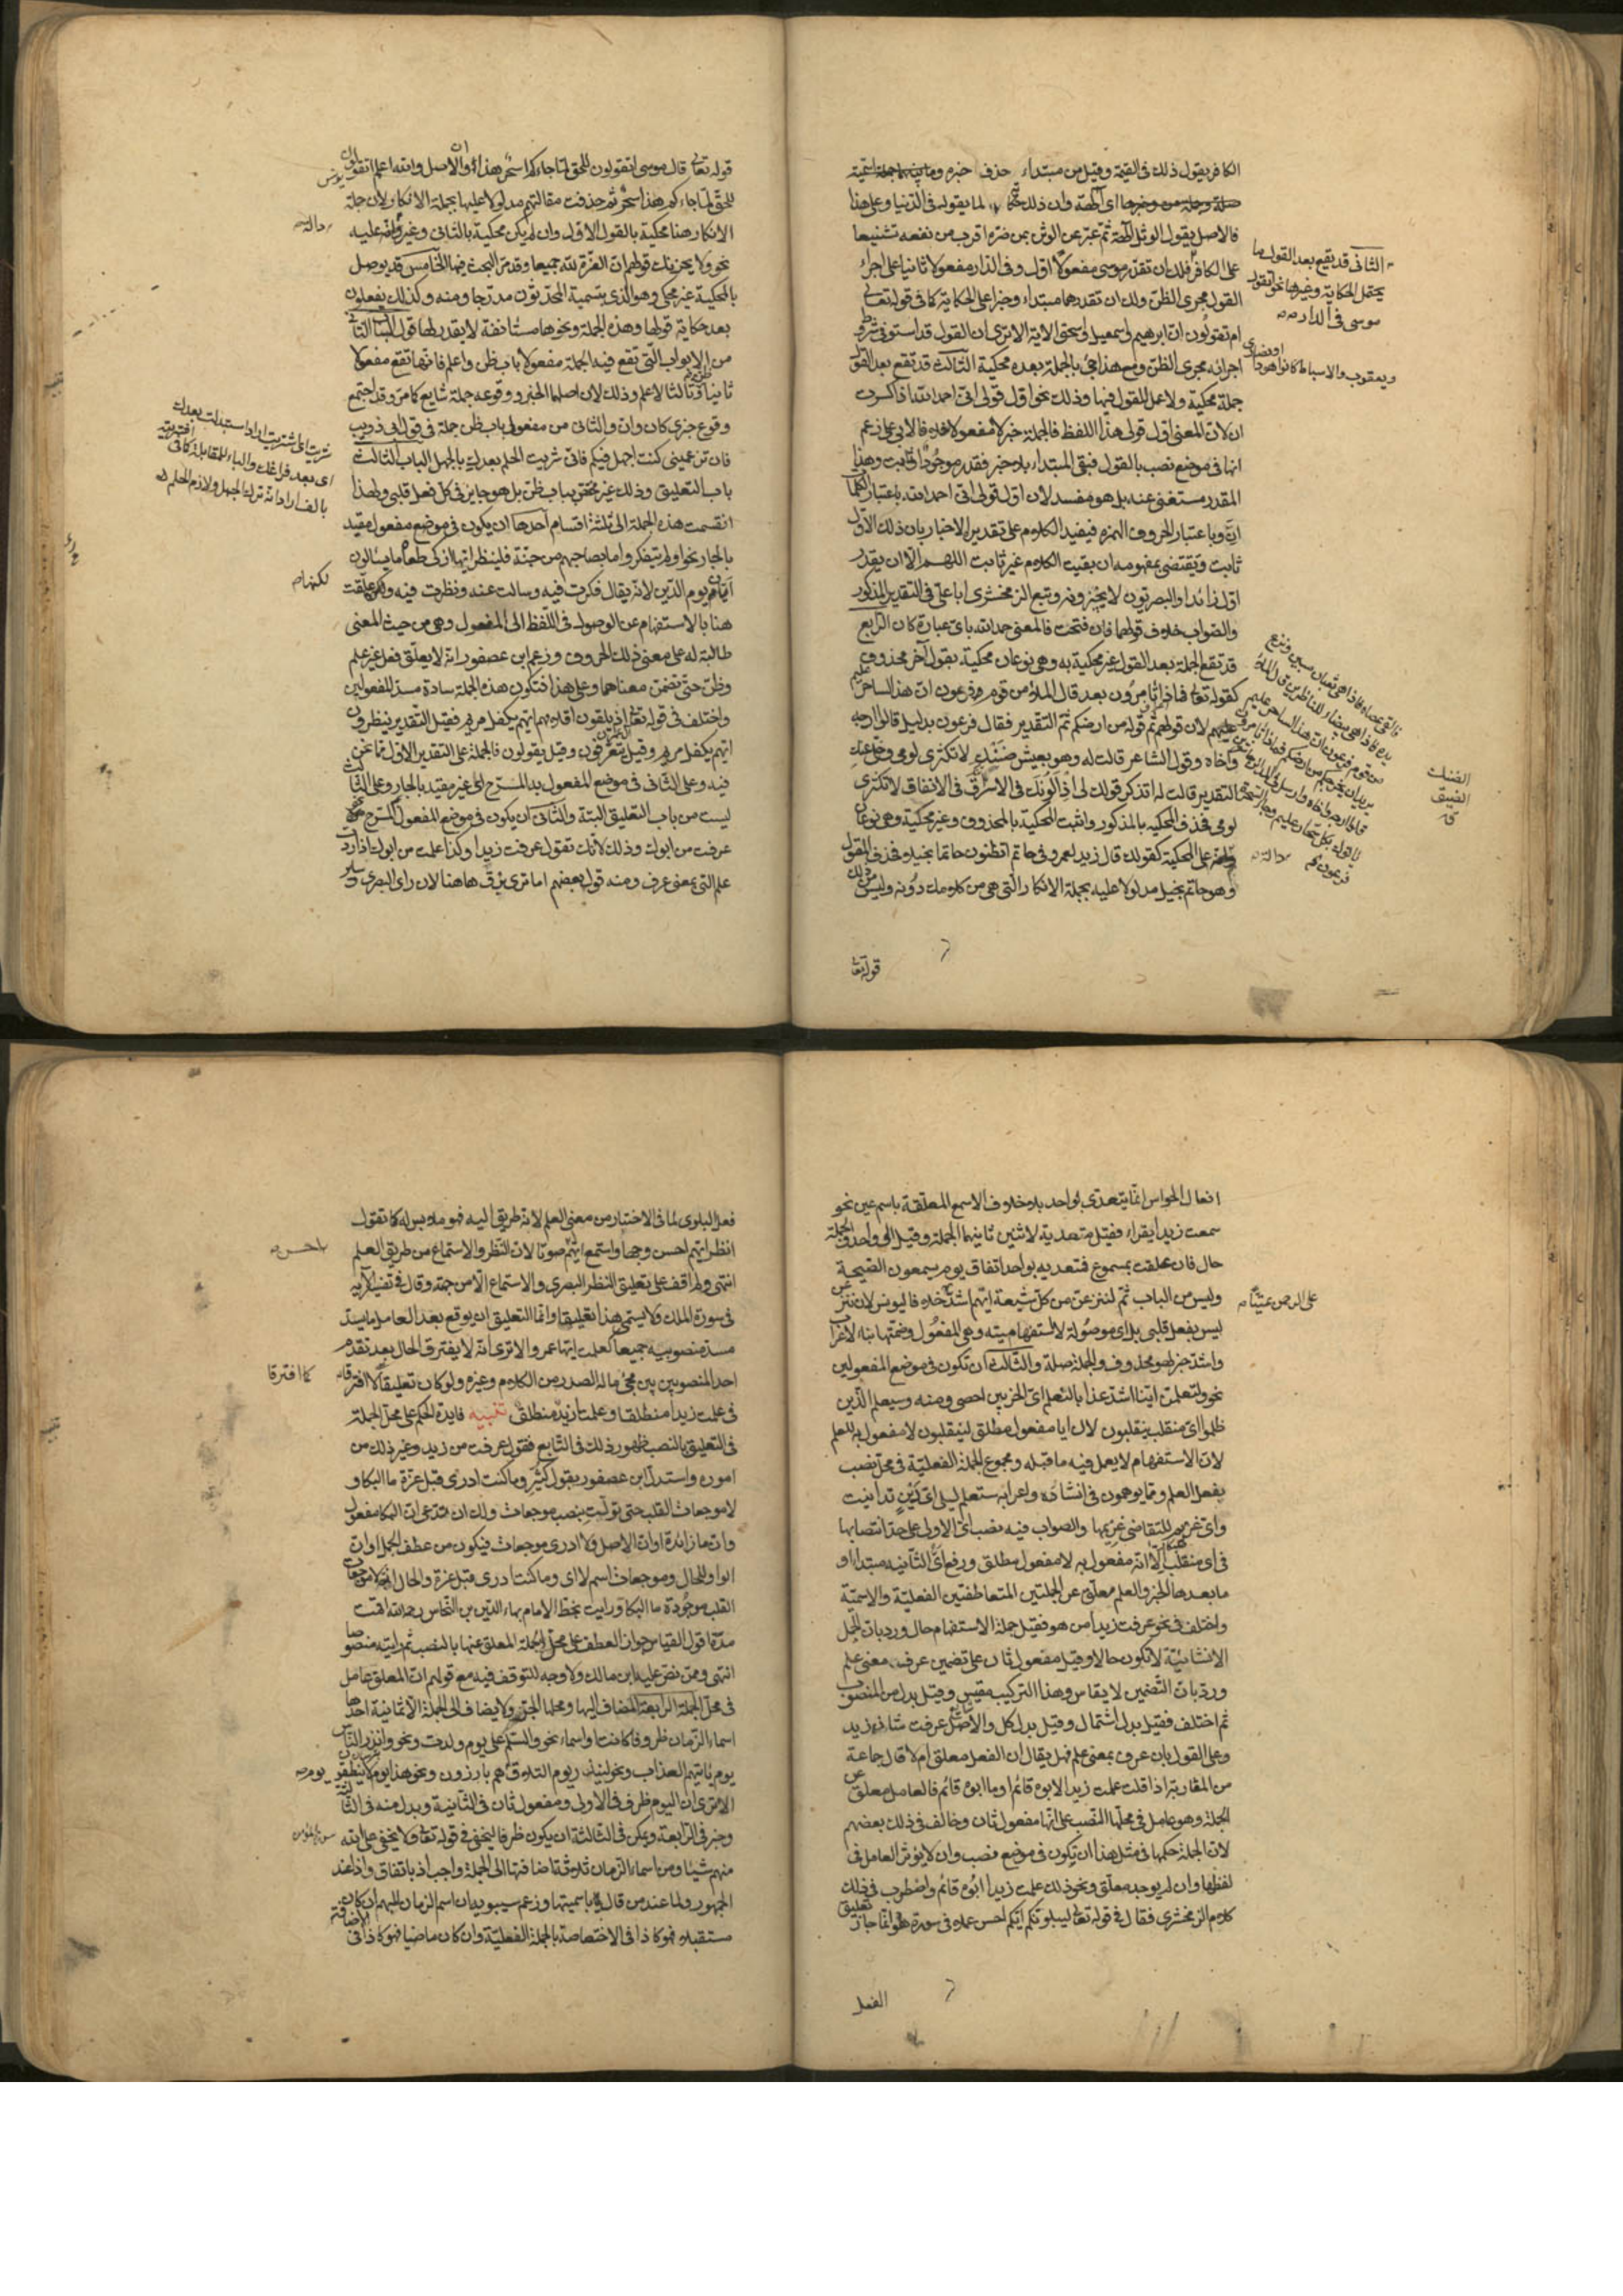 الكافر يقول ذلك فى القيمة وقيل من مبتداء حذف خبره
صلة وجملة من وخبرها اى الهه وان ذلك حكاية لما يقوله فى الدنيا وعلى هذا
فالاصل يقول الوثن الهه ثم عبر عن الوثن بمن ضره اقرب من نفعه تشنيعا
على الكافر فلك ان تقدر موسى مفعولا اول وفى الدار مفعولا ثانيا على اجراء
القول مجرى الظن ولك ان تقدرهما مبتداء وخبرا على الحكاية كما فى قوله تعالى
ام تقولون ان ابرهيم واسمعيل واسحق الاية الا ترى ان القول قد استوفى شروط
اجرائه مجرى الظن ومع هذا جئ بالجملة بعده محكية الثالث قد تقع بعد القول
جملة محكية ولا عمل للقول فيها وذلك نحو اول قولى انى احمد الله اذا كسرت
ان لان المعنى اول قولى هذا اللفظ فالجملة خبر لا مفعول خلافا لابى على زعم
انها فى موضع نصب بالقول فبقى المبتداء بلا خبر فقدر موجود او ثابت وهذا
المقدر مستغنى عنه بل هو مفسد لان اول قولى انى احمد الله باعتبار الكلمات
ان وباعتبار الحروف الهمزه فيفيد الكلام على تقديره الاخبار بان ذلك الاول
ثابت ويقتضى بمفهومه ان بقيت الكلام غير ثابت اللهم الا ان يقدر
اول زائدا والبصريون لا يجيزونه وتبع الزمخشرى ابا على فى التقدير المذكور
والصواب خلاف قولهما فان فتحت فالمعنى حمد الله باى عبارة كان الرابع
قد تقع الجملة بعد القول غير محكية به وهى نوعان محكية بقول آخر محذوف
كقوله تعالى فماذا تامرون بعد قال الملاء من قوم فرعون ان هذا لساحر عليم
لان قولهم تم قوله من ارضكم ثم التقدير فقال فرعون بدليل قالوا ارجه
واخاه وقول الشاعر قالت له وهو بعيش ضنك لا تكثرى لومى وخلى عنك
التقدير قالت له اتذكر قولك لى اذ الومك فى الاسراف فى الانفاق لا تكثرى
لومى فحذف المحكيه بالمذكور واثبت المحكية بالمحذوف وغير محكية وهى نوعان
على المحكية كقولك قال زيد لعمرو فى حاتم اتظنون حاتما بخيلا فحذف المقول
وهو حاتم بخيل مدلولا عليه بجملة الانكار التى هى من كلامك دونه وليس من ذلك
قوله تعالى
الثانى قد يقع بعد القول ما
يحتمل الحكاية وغيرها نحو اتقول
موسى فى الدار
ويعقوب والاسباط كانوا هودا
او نصارى
فالقى عصاه فاذا هى ثعبان مبين ونزع
يده فاذا هى بيضاء للناظرين قال الملاء
من قوم فرعون ان هذا لساحر عليم
يريد ان يخرجكم من ارضكم فماذا تامرون
قالوا ارجه واخاه وارسل فى المدائن حاشرين
ياتوك بكل سحار عليم وجاء السحرة
فرعون
الضنك
الضيق
قوله تعالى قال موسى اتقولون للحق لما جاءكم اسحر هذا والاصل والله اعلم اتقولون
للحق لما جاءكم هذا سحر ثم حذفت مقالتهم مدلولا عليها بجملة الانكار ولان جملة
الانكار هنا محكية بالقول الاول وان لم يكن محكية بالثانى وغير دالة عليه
نحو ولا يحزنك قولهم ان العزة لله جميعا وقد مر البحث فيها الخامس قد يوصل
بالمحكية غير محكى وهو الذى يسميه المحدثون مدرجا ومنه وكذلك يفعلون
بعد حكاية قولها وهذه الجملة ونحوها مستانفة لا يقدر لها قول الباب الثانى
من الابواب التى تقع فيه الجملة مفعولا باب ظن واعلم فانها تقع مفعولا
ثانيا لظن وثالثا لاعلم وذلك لان اصلهما الخبر ووقوعه جملة شايع كما مر وقد اجتمع
وقوع خبرى كان وان والثانى من مفعولى باب ظن جملة فى قول ابى ذويب
فان تزعمينى كنت اجهل فيكم فانى شريت الحلم بعدك بالجهل الباب الثالث
باب التعليق وذلك غير مختص بباب ظن بل هو جايز فى كل فعل قلبى ولهذا
انقسمت هذه الجملة الى ثلثة اقسام احدها ان يكون فى موضع مفعول مقيد
بالجار نحو اولم يتفكروا ما بصاحبهم من جنة فلينظر ايها ازكى طعاما يسالون
ايان يوم الدين لانه يقال فكرت فيه وسالت عنه ونظرت فيه ولكن علقت
هنا بالاستفهام عن الوصول فى اللفظ الى المفعول وهى من حيث المعنى
طالبة له على معنى ذلك الحروف وزعم ابن عصفور انه لا يعلق فعل غير علم
وظن حتى تضمن معناهما وعلى هذا فتكون هذه الجملة سادة مسد المفعولين
واختلف فى قوله تعالى اذ يلقون اقلامهم ايهم يكفل مريم فقيل التقدير ينظرون
ايهم يكفل مريم وقيل يتعرفون وقيل يقولون فالجملة على التقدير الاول مما نحن
فيه وعلى الثانى فى موضع المفعول به المسرح اى غير مقيد بالجار وعلى الثالث
ليست من باب التعليق البتة والثانى ان يكون فى موضع المفعول المسرح نحو
عرفت من ابوك وذلك لانك تقول عرفت زيدا وكذا علمت من ابوك اذا اردت
علم التى بمعنى عرف ومنه قول بعضهم اما ترى اى برق هاهنا لان راى البصرى وساير
يونس
دالة
شريت اى اشتريت اراد استبدلت بعدك
اى بعد فراقك والباء للمقابلة كما فى
بالف اراد انه ترك الجهل ولازم الحلم
لكنها
افعال الحواس انما يتعدى لواحد بلا خلاف الا سمع المعلقة باسم عين نحو
سمعت زيدا يقراء فقيل متعدية لاثنين ثانيهما الجملة وقيل الى واحد والجملة
حال فان علقت بمسموع فتعديه لواحد اتفاق يوم يسمعون الصيحة
وليس من الباب ثم لننزعن من كل شيعة ايهم اشد خلافا ليونس لان ننزع
ليس بفعل قلبى بل اى موصولة لا استفهامية وهى المفعول وضمتها بناء لا اعراب
واشد خبر لهو محذوف والجملة صلة والثالث ان تكون فى موضع المفعولين
نحو ولتعلمن اينا اشد عذابا لنعلم اى الحزبين احصى ومنه وسيعلم الذين
ظلموا اى منقلب ينقلبون لان ايا مفعول مطلق لينقلبون لا مفعول به لعلم
لان الاستفهام لا يعمل فيه ما قبله ومجموع الجملة الفعلية فى محل نصب
بفعل العلم ومما يوهمون فى انشاده واعرابه ستعلم ليلى اى دين تداينت
واى غريم للتقاضى غريمها والصواب فيه نصب اى الاولى على حد انتصابها
فى اى منقلب الا انه مفعول به لا مفعول مطلق ورفع اى الثانيه مبتداء و
ما بعدها الخبر والعلم معلق عن الجملتين المتعاطفتين الفعلية والاسمية
واختلف فى نحو عرفت زيدا من هو فقيل جملة الاستفهام حال ورد بان الجمل
الانشائية لا تكون حالا وقيل مفعول ثان على تضمين عرف معنى علم
ورد بان التضمين لا يقاس وهذا التركيب مقيس وقيل بدل من المنصوب
ثم اختلف فقيل بدل اشتمال وقيل بدل كل والاصل عرفت شان زيد
وعلى القول بان عرف بمعنى علم فهل يقال ان الفعل معلق ام لا قال جاعة
من المغاربة اذا قلت علمت زيدا لابوه قائم او ما ابوه قائم فالعامل معلق عن
الجملة وهو عامل فى محلها النصب على انها مفعول ثان وخالف فى ذلك بعضهم
لان الجملة حكمها فى مثل هذا ان يكون فى موضع نصب وان لا يؤثر العامل فى
لفظها وان لم يوجد معلق ونحو ذلك علمت زيدا ابوه قائم واضطرب فى ذلك
كلام الزمخشرى فقال فى قوله تعالى ليبلوكم ايكم احسن عملا فى سورة هود انما جاز تعليق
الفعل
على الرحمن عتيا
فعل البلوى لما فى الاختبار من معنى العلم لانه طريق اليه فهو ملابس له كما تقول
انظر ايهم احسن وجها واستمع ايهم صوتا لان النظر والاستماع من طريق العلم
انتهى ولم اقف على تعليق النظر البصرى والاستماع الا من جهته وقال فى تفسير الآيه
فى سورة الملك ولا يسمى هذا تعليقا وانما التعليق ان يوقع بعد العامل ما يسد
مسد منصوبيه جميعا كعلمت ايهما عمرو الا ترى انه لا يفترق الحال بعد تقدم
احد المنصوبين بين مجئ ما له الصدر من الكلام وغيره ولو كان تعليقا لافترقا
فى علمت زيدا منطلقا وعلمت ازيد منطلق تنبيه فايدة الحكم على محل الجملة
فى التعليق بالنصب ظهور ذلك فى التابع فتقول عرفت من زيد وغير ذلك من
اموره واستدل ابن عصفور بقول كثير وما كنت ادرى قبل عزة ما البكا و
لا موجعات القلب حتى تولت بنصب موجعات ولك ان تدعى ان البكا مفعول
وان ما زائدة او ان الاصل ولا ادرى موجعات فيكون من عطف الجمل او ان
الواو للحال وموجعات اسم لا اى وما كنت ادرى قبل عزة والحال انه لا موجعات
القلب موجودة ما البكا ورايت بخط الامام بهاء الدين بن النحاس رحمه الله اقمت
مدة اقول القياس جواز العطف على محل الجملة المعلق عنها بالنصب ثم رايته منصوصا
انتهى وممن نص عليه ابن مالك ولا وجه للتوقف فيه مع قولهم ان المعلق عامل
فى محل الجملة الرابعة المضاف اليها ومحلها الجر ولا يضاف الى الجملة الا ثمانية احدها
اسماء الزمان ظروفا كانت او اسماء نحو والسلم على يوم ولدت ونحو وانذر الناس
يوم ياتيهم العذاب ونحو لينذر يوم التلاق يوم هم بارزون ونحو هذا يوم لا ينطقون
الا ترى ان اليوم ظرف فى الاولى ومفعول ثان فى الثانية وبدل منه فى الثالثة
وخبر فى الرابعة ويمكن فى الثالثة ان يكون ظرفا ليخفى فى قوله تعالى لا يخفى على الله
منهم شئ ومن اسماء الزمان ثلاثة اضافتها الى الجملة واجب اذ باتفاق واذا عند
الجمهور ولما عند من قال باسميتها وزعم سيبويه ان اسم الزمان المبهم ان كان
مستقبلا فهو كاذا فى الاختصاص بالجملة الفعلية وان كان ماضيا فهو كاذ فى الاضافة
احسن
كما افترقا
يوم